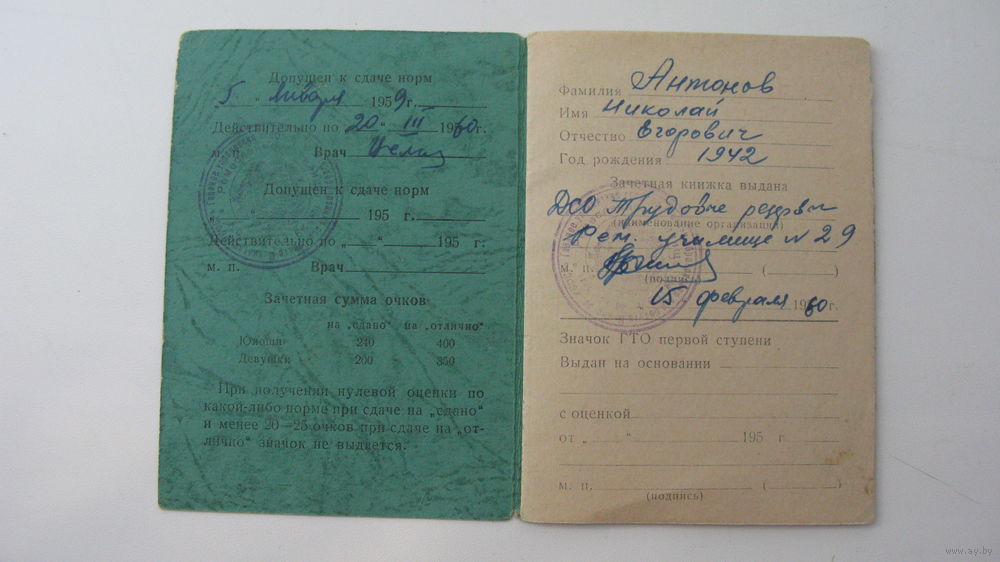 Допущен к сдаче норм
5 " января 1959г.
Действительно по „20“ III 1960г.
м. п. Врач
Допущен к сдаче норм
„ “ 195 г.
Действительно по „ “ 195 г.
м. п. Врач
Зачетная сумма очков
на „сдано“ на „отлично“
Юноши 240 400
Девушки 200 350
При получении нулевой оценки по
какой-либо норме при сдаче на „сдано“
и менее 20—25 очков при сдаче на „от-
лично“ значок не выдается.
Фамилия Антонов
Имя Николай
Отчество Егорович
Год рождения 1942
Зачетная книжка выдана
ДСО Трудовые резервы
(наименование организации)
Рем. училище N 29
м. п. ( )
(подпись)
15 февраля 1960г.
Значок ГТО первой ступени
Выдан на основании
с оценкой
от „ “ 195 г
м. п. ( )
(подпись)
www.ay.by